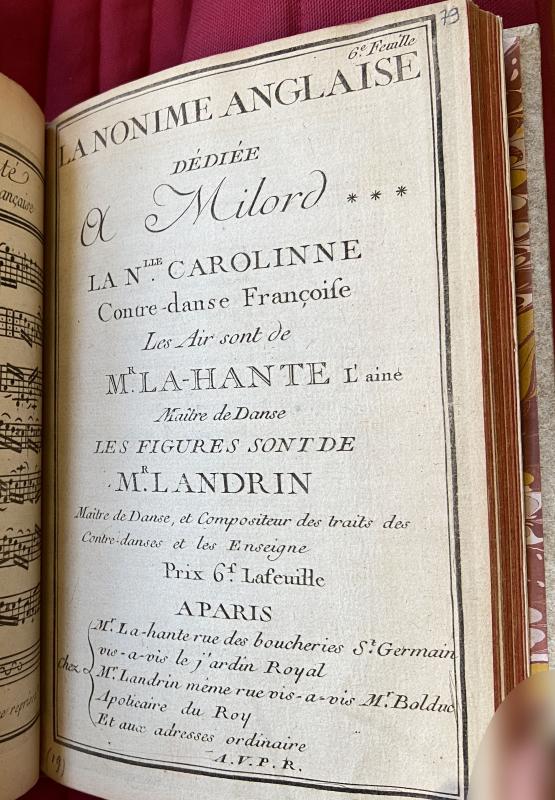 79
6.e Feuille
LA NONIME ANGLAISE
DÉDIÉE
A Milord ***
LA N.LLE CAROLINNE
Contre-danse Françoiſe
Les Air sont de
M.R LA-HANTE L'ainé
Maître de Danse
LES FIGURES SONT DE
M.R LANDRIN
Maitre de Danse, et Compositeur des traits des
Contre-danses et les Enseigne
Prix 6.f Lafeuille
A PARIS
chez
M.r La-hante rue des boucheries S.t Germain
vis-a-vis le j'ardin Royal
M.r Landrin même rue vis-a-vis M.r Bolduc
Apoticaire du Roy
Et aux adresses ordinaire
A.V.P.R.
(19)
té
ançaise